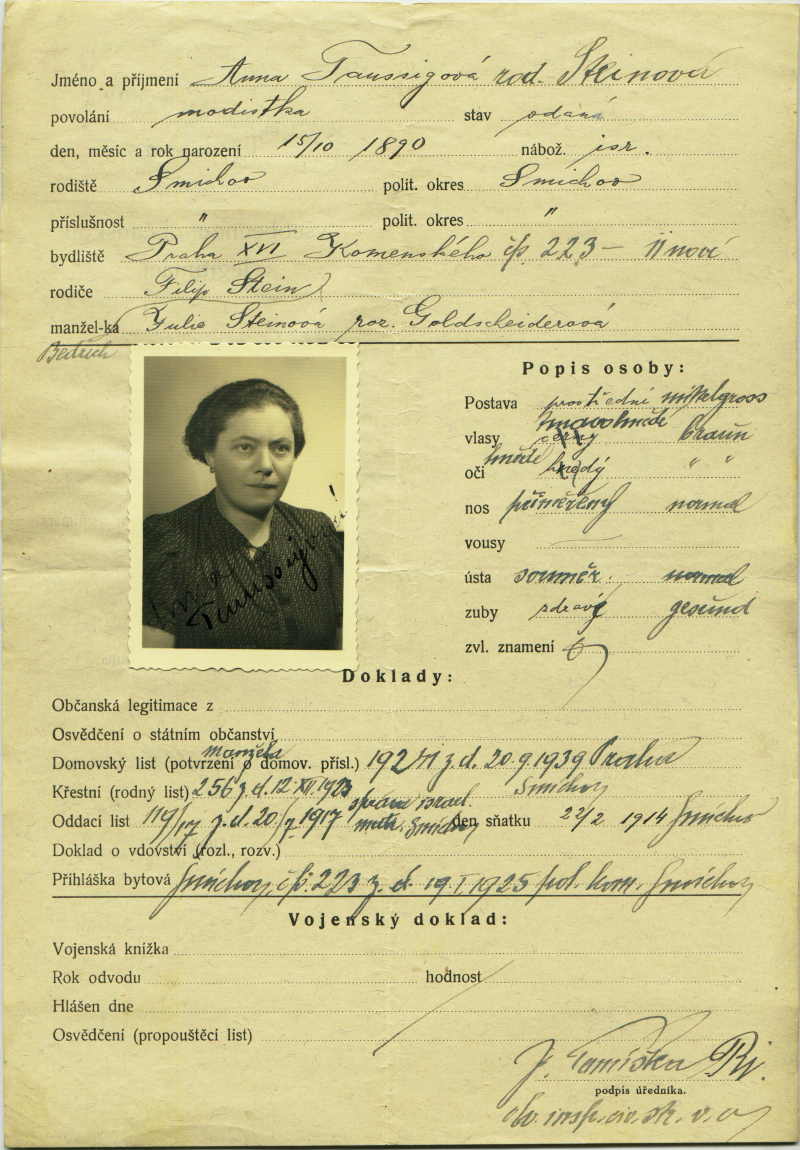 Jméno a příjmení Anna Taussigová roz. Steinová
povolání modistka stav vdaná
den, měsíc a rok narození 15/10 1890 nábož. isr.
rodiště Smíchov polit. okres Smíchov
příslušnost " polit. okres "
bydliště Praha XVI Komenského čp. 223 –
rodiče Filip Stein
manžel-ka Julie Steinová roz. Goldscheiderová
Bedřich
Popis osoby:
Postava prostřední mittelgross
vlasy černý tmavohnědé braun
oči hnědý hnědé " "
nos přiměřený normal
vousy —
ústa souměr. normal
zuby zdravé gesund
zvl. znamení
Anna Taussigová
Doklady:
Občanská legitimace z
Osvědčení o státním občanství
manžela
Domovský list (potvrzení o domov. přísl.) z. d. 20.9.1939 Praha
Křestní (rodný list) 256 z. d. 12. XII. 1923 Smíchov
správa israel.
Oddací list 119/17 z. d. 20./7. 1917 matr. Smíchov den sňatku 22/2 1914 Smíchov
Doklad o vdovství (rozl., rozv.)
Přihláška bytová Smíchov, čp. 223 z. d. 19. I. 1925 pol. kom. Smíchov
Vojenský doklad:
Vojenská knížka
Rok odvodu hodnost
Hlášen dne
Osvědčení (propouštěcí list)
podpis úředníka.